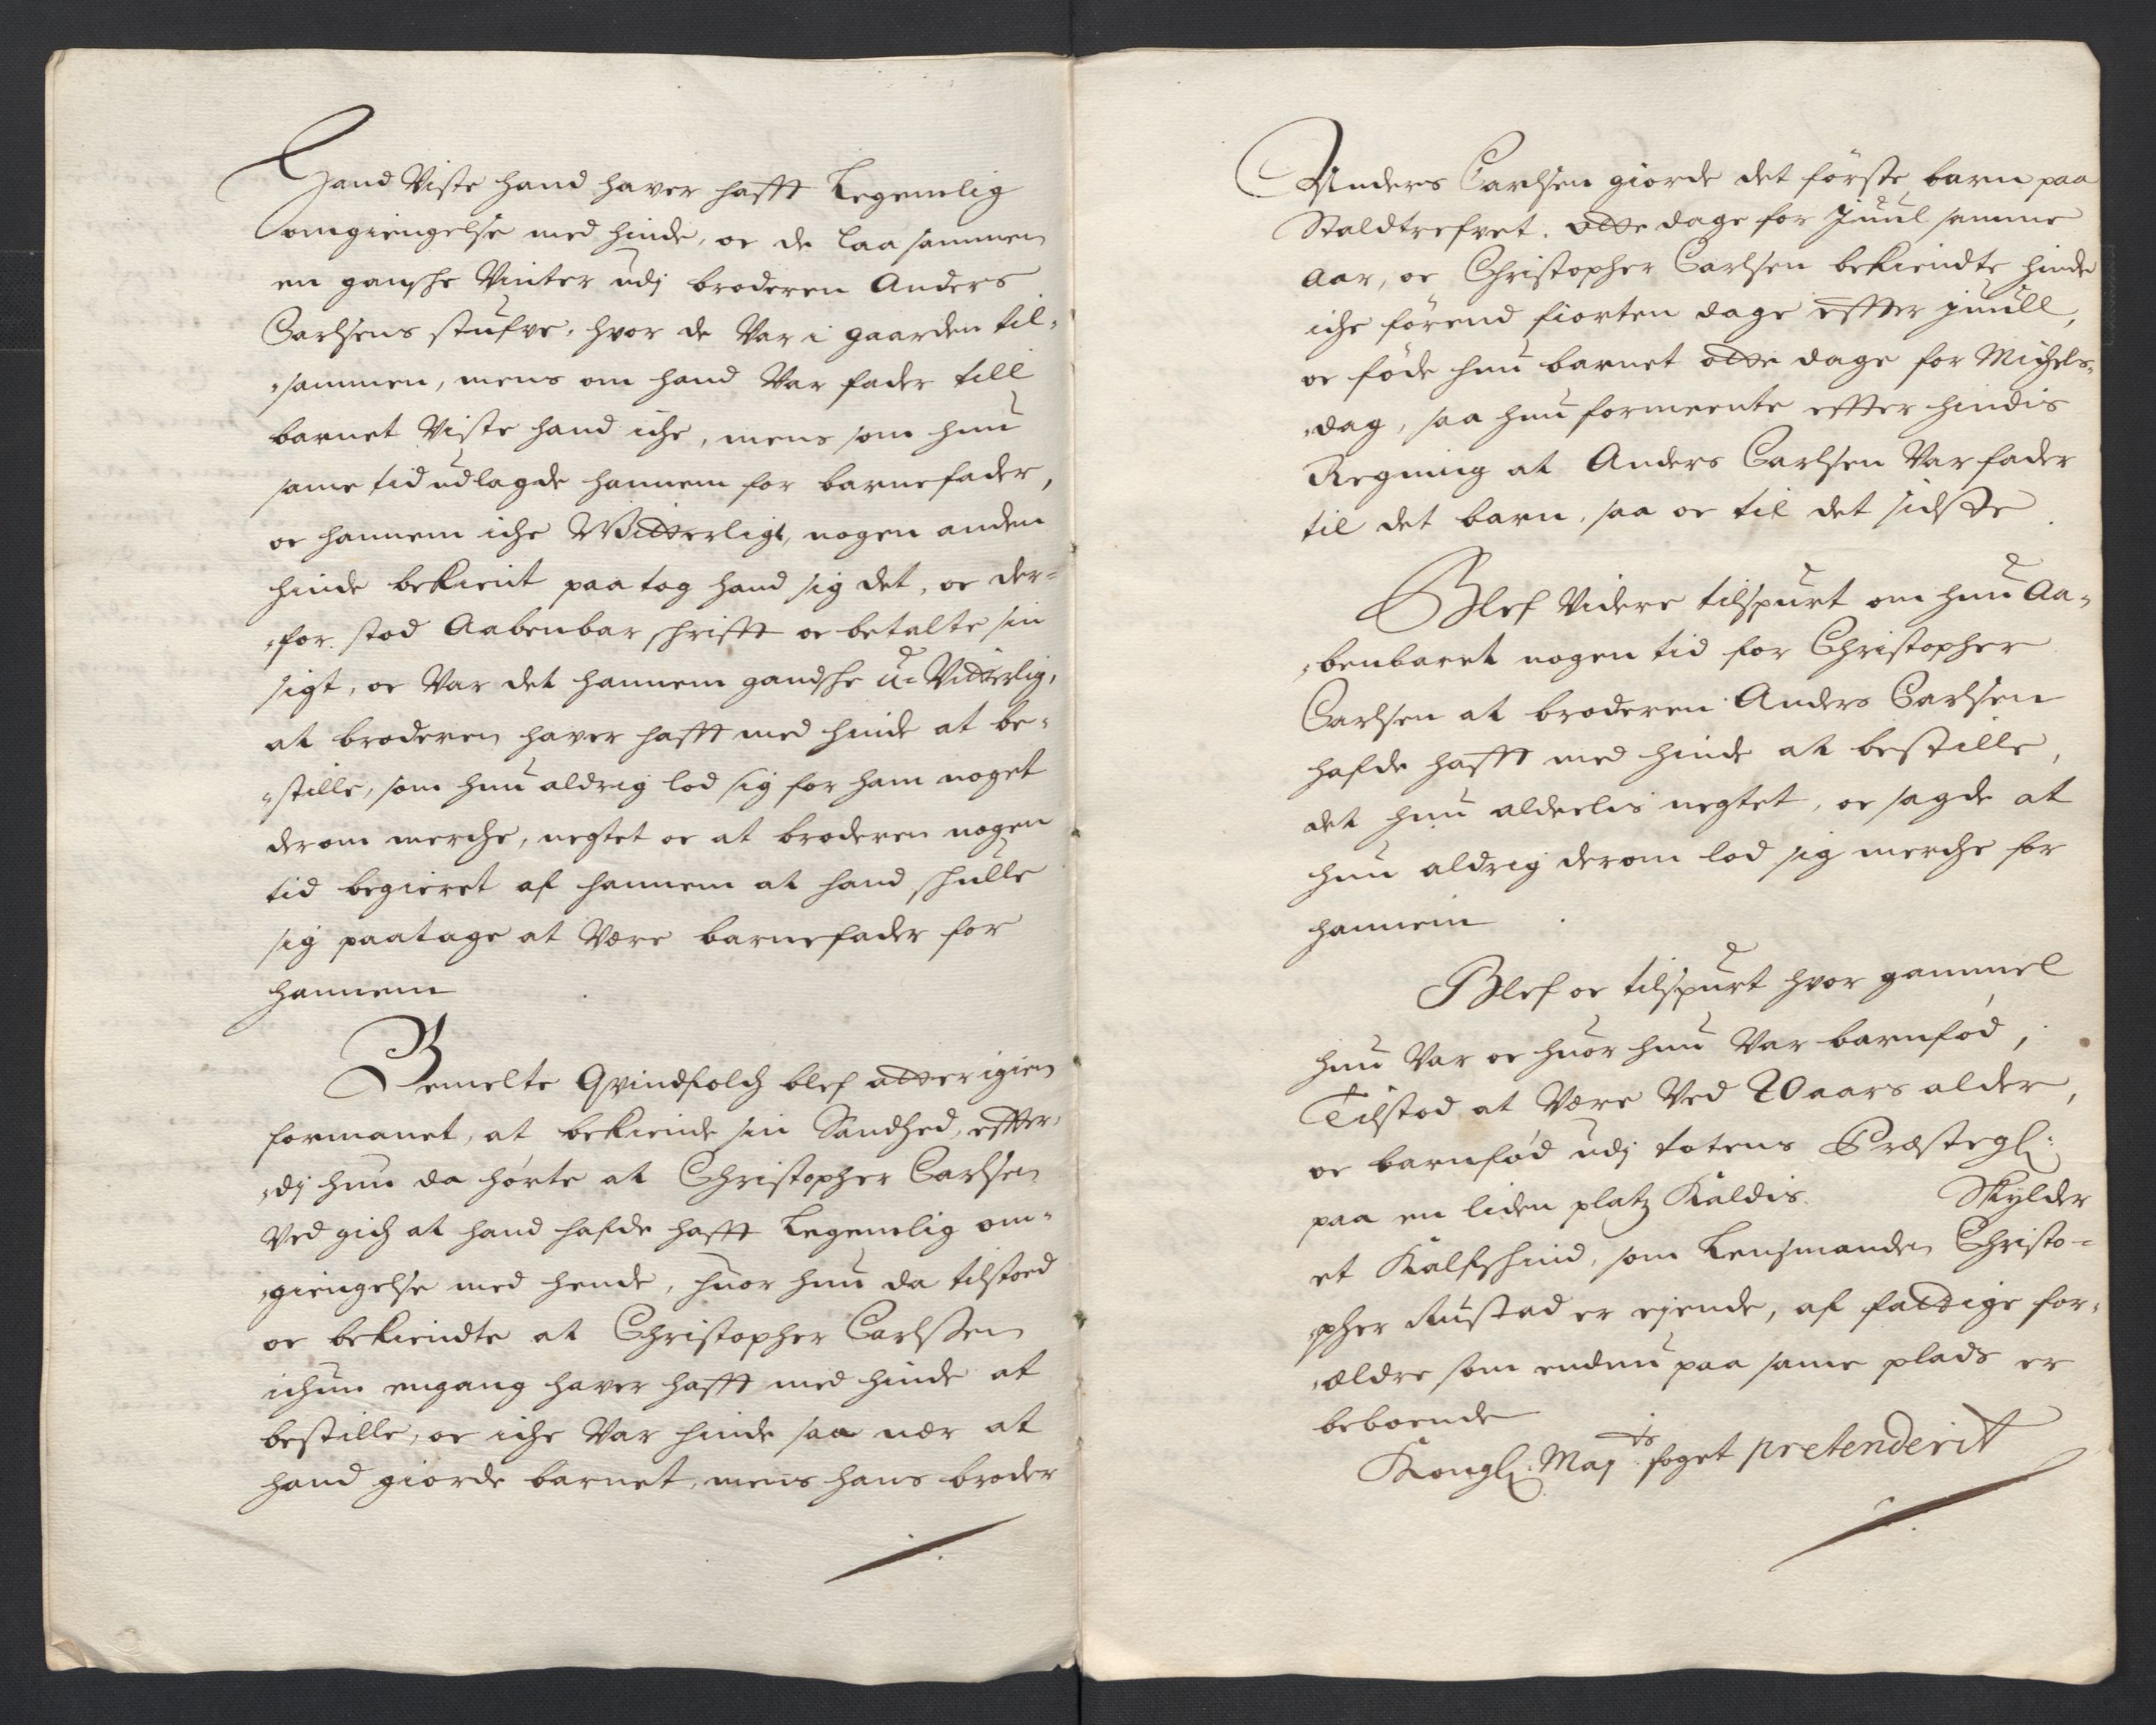 Hand Viste hand haver hafft Legemelig
omgiengelse med hinde, oc de laa sammen
en gansche Vinter udj broderen Anders
Carlsens stufve, hvor de Var i gaarden til-
sammen, mens om hand Var fader till
barnet Viste hand iche, mens som huu
same tid udlagde hannem for barnefader,
oc hannem iche Witterligt, nogen anden
hinde bekient paa tog hand sig det, oc der-
for stod Aabenbar schrifft oc betalte sin
sigt, oc Var det hannem gandsche u-Vitterlig,
at broderen haver hafft med hinde at be-
stille, som huu aldrig lod sig for ham noget
derom merche, negtet oc at broderen nogen
tid begieret af hannem at hand schulle
sig paatage at Være barnefader for
hannem
Bemelte Qvindfolch blef atter igien
formanet, at bekiende sin Sandhed, effter-
dj huu da hørte at Christopher Carlsen
Ved gich at hand hafde hafft Legemelig om-
giengelse med hende, huor huu da tilstoed
oc bekiendte at Christopher Carlssen
ichun engang haver hafft med hinde at
bestille, oc iche Var hinde saa nær at
hand giorde barnet, mens hans broder
Anders Carlsen giorde det förste barn paa
Staldtrefvet. otte dage for Juul samme
aar, oc Christopher Carlsen bekiendte hinde
iche förend fiorten dage effter juull,
oc föde huu barnet otte dage for Michels-
dag, saa huu formeente effter hindis
Regning at Anders Carlsen Var fader
til det barn, saa oc til det sidste
Blef Videre tilspurt om huu Aa-
benbaret nogen tid for Christopher
Carlsen at broderen Anders Carlsen
hafde hafft med hinde at bestille,
det huu aldeelis negtet, oc sagde at
huu aldrig derom lod sig merche for
hannem
Blef oc tilspurt hvor gammel
huu Var oc huor huu Var barnfød,
Tilstod at Være Ved 20 aars alder,
oc barnfød udj totens Præstegl:
paa en liden platz Kaldis Skylder
et Kalfschind, som Lensmanden Christo-
pher Rustad er ejende, af fattige for-
ældre som endnu paa same plads er
beboende
Kongl: Maj ts foget pretenderit